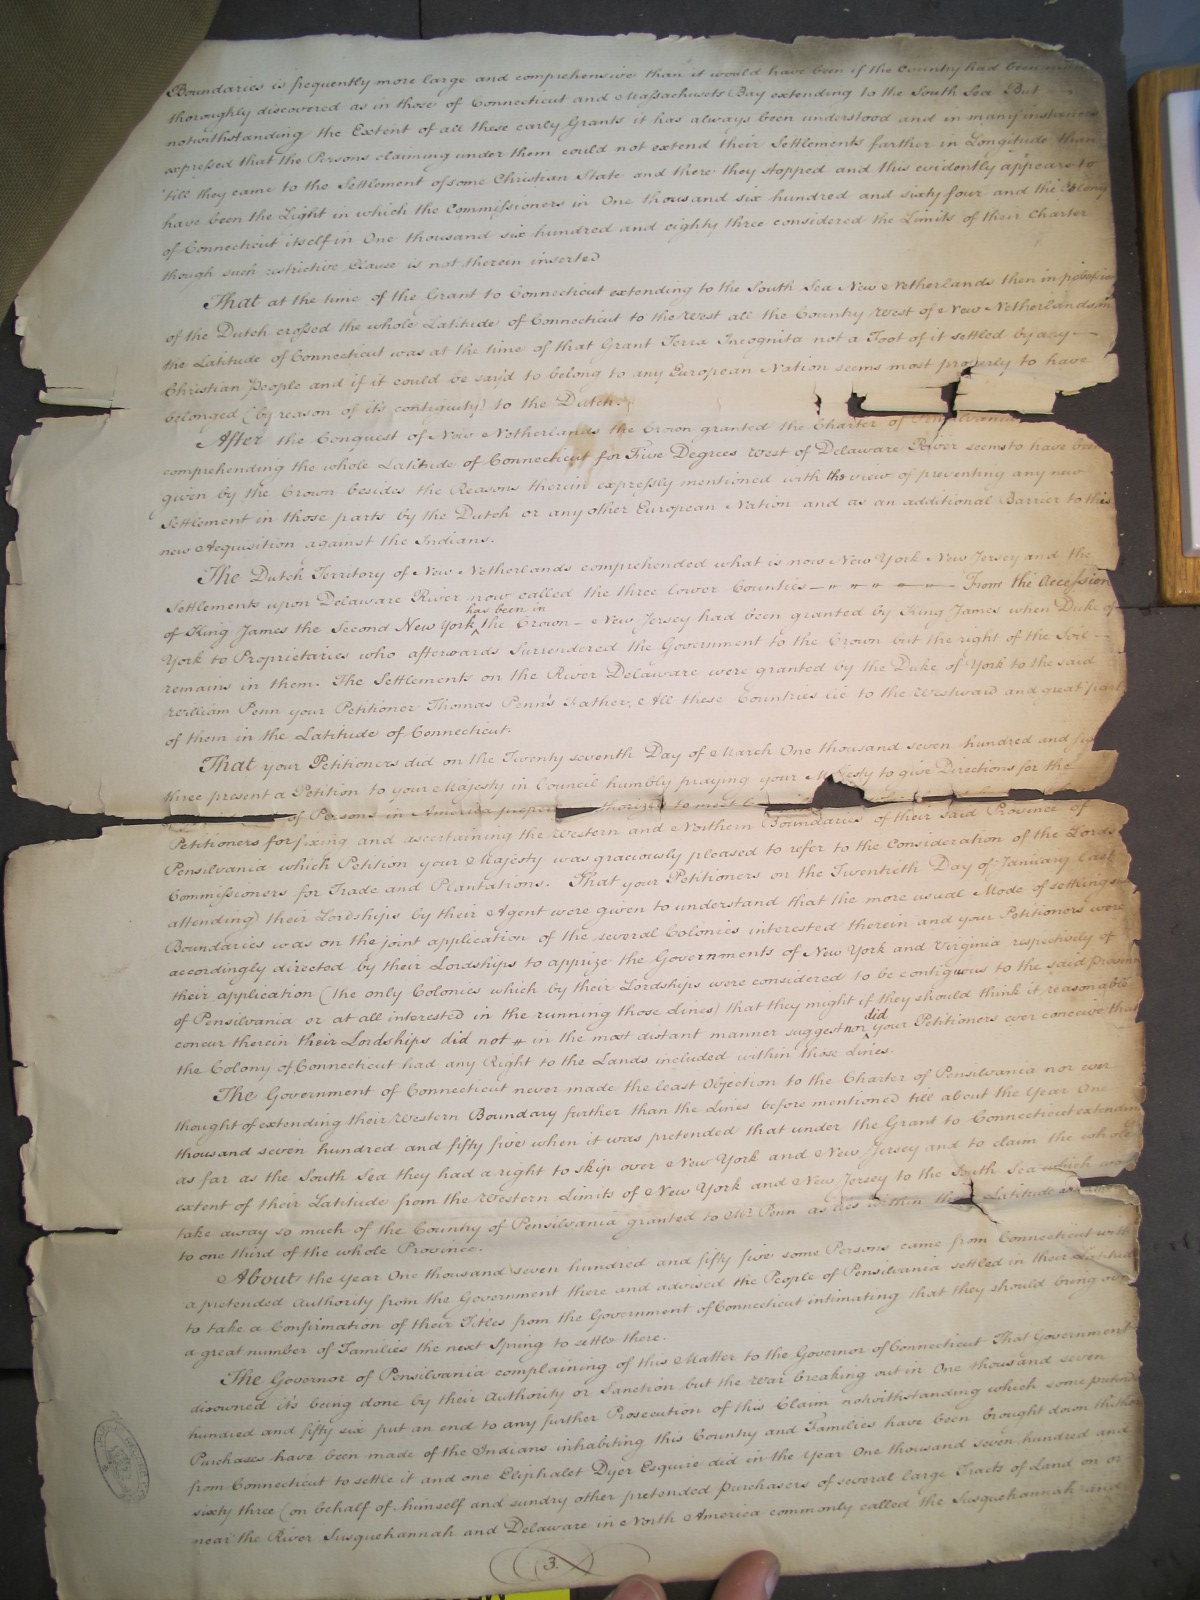 Boundaries is frequently more large and comprehensive than it would have been if the Country had been
thoroughly discovered as in those of Connecticut and Massachusets Bay extending to the South Sea But
notwithstanding the Extent of all these early Grants it has always been understood and in many instances
expressed that the Persons claiming under them could not extend their Settlements farther in Longitude than
'till they came to the Settlement of some Christian State and there they stopped and this evidently appears to
have been the Light in which the Commissioners in One thousand six hundred and sixty four and the Colony
of Connecticut itself in One thousand six hundred and eighty three considered the Limits of their Charter
though such restrictive Clause is not therein inserted
That at the time of the Grant to Connecticut extending to the South Sea New Netherlands then in possession
of the Dutch crossed the whole Latitude of Connecticut to the West all the Country West of New Netherlands in
the Latitude of Connecticut was at the time of that Grant Terra Incognita not a Foot of it settled by any
Christian People and if it could be sayd to belong to any European Nation seems most properly to have
belonged (by reason of it's contiguity) to the Dutch.
After the Conquest of New Netherlands the Crown granted the Charter of Pensilvania
comprehending the whole Latitude of Connecticut for Five Degrees West of Delaware River seems to have been
given by the Crown besides the Reasons therein expressly mentioned with the view of preventing any new
Settlement in those parts by the Dutch or any other European Nation and as an additional Barrier to this
new Acquisition against the Indians.
The Dutch Territory of New Netherlands comprehended what is now New York New Jersey and the
Settlements upon Delaware River now called the three lower Counties — " " " — " — From the Accession
of King James the Second New York ^ has been in the Crown - New Jersey had been granted by King James when Duke of
York to Proprietaries who afterwards Surrendered the Government to the Crown but the right of the Soil —
remains in them. The Settlements on the River Delaware were granted by the Duke of York to the said
William Penn your Petitioner Thomas Penn's Father, All these Countries lie to the Westward and great part
of them in the Latitude of Connecticut.
That your Petitioners did on the Twenty seventh Day of March One thousand seven hundred and
three present a Petition to your Majesty in Council humbly praying your Majesty to give Directions for the
of Persons in America to meet
Petitioners for fixing and ascertaining the Western and Northern Boundaries of their said Province of
Pensilvania which Petition your Majesty was graciously pleased to refer to the Consideration of the Lords
Commissioners for Trade and Plantations. That your Petitioners on the Twentieth Day of January last
attending their Lordships by their Agent were given to understand that the more usual Mode of settling such
Boundaries was on the joint application of the several Colonies interested therein and your Petitioners were
accordingly directed by their Lordships to apprize the Governments of New York and Virginia respectively of
their application (the only Colonies which by their Lordships were considered to be contiguous to the said Province
of Pensilvania or at all interested in the running those Lines) that they might if they should think it reasonable
concur therein their Lordships did not " in the most distant manner suggest nor ^ did your Petitioners ever conceive that
the Colony of Connecticut had any Right to the Lands included within those Lines.
The Government of Connecticut never made the least Objection to the Charter of Pensilvania nor ever
thought of extending their Western Boundary further than the Lines before mentioned till about the Year One
thousand seven hundred and fifty five when it was pretended that under the Grant to Connecticut extending
as far as the South Sea they had a right to skip over New York and New Jersey and to claim the whole
extent of their Latitude from the Western Limits of New York and New Jersey to the South Sea which would
take away so much of the Country of Pensilvania granted to Mr. Penn as lies within the Latitude
to one third of the whole Province.
About the Year One thousand seven hundred and fifty five some Persons came from Connecticut with
a pretended Authority from the Government there and advised the People of Pensilvania settled in their Latitude
to take a Confirmation of their Titles from the Government of Connecticut intimating that they should bring over
a great number of Families the next Spring to settle there.
The Governor of Pensilvania complaining of this Matter to the Governor of Connecticut That Government
disowned it's being done by their Authority or Sanction but the War breaking out in One thousand seven
hundred and fifty six put an end to any further Prosecution of this Claim notwithstanding which some pretended
Purchases have been made of the Indians inhabiting this Country and Families have been brought down thither
from Connecticut to settle it and one Eliphalet Dyer Esquire did in the Year One thousand seven hundred and
sixty three (on behalf of himself and sundry other pretended Purchasers of several large Tracts of Land on or
near the River Susquehannah and Delaware in North America commonly called the Susquehannah and
3.